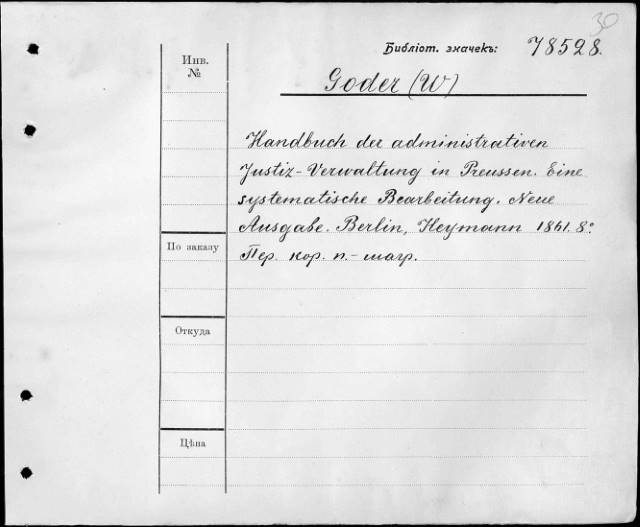 30
Библіот. значекъ: 78528.
Инв.
№
Goder (W)
Handbuch der administrativen
Justiz-Verwaltung in Preussen. Eine
systematische Bearbeitung. Neue
Ausgabe. Berlin, Heymann 1861. 8º
Пер. кор. п.-шагр.
По заказу
Откуда
Цѣна